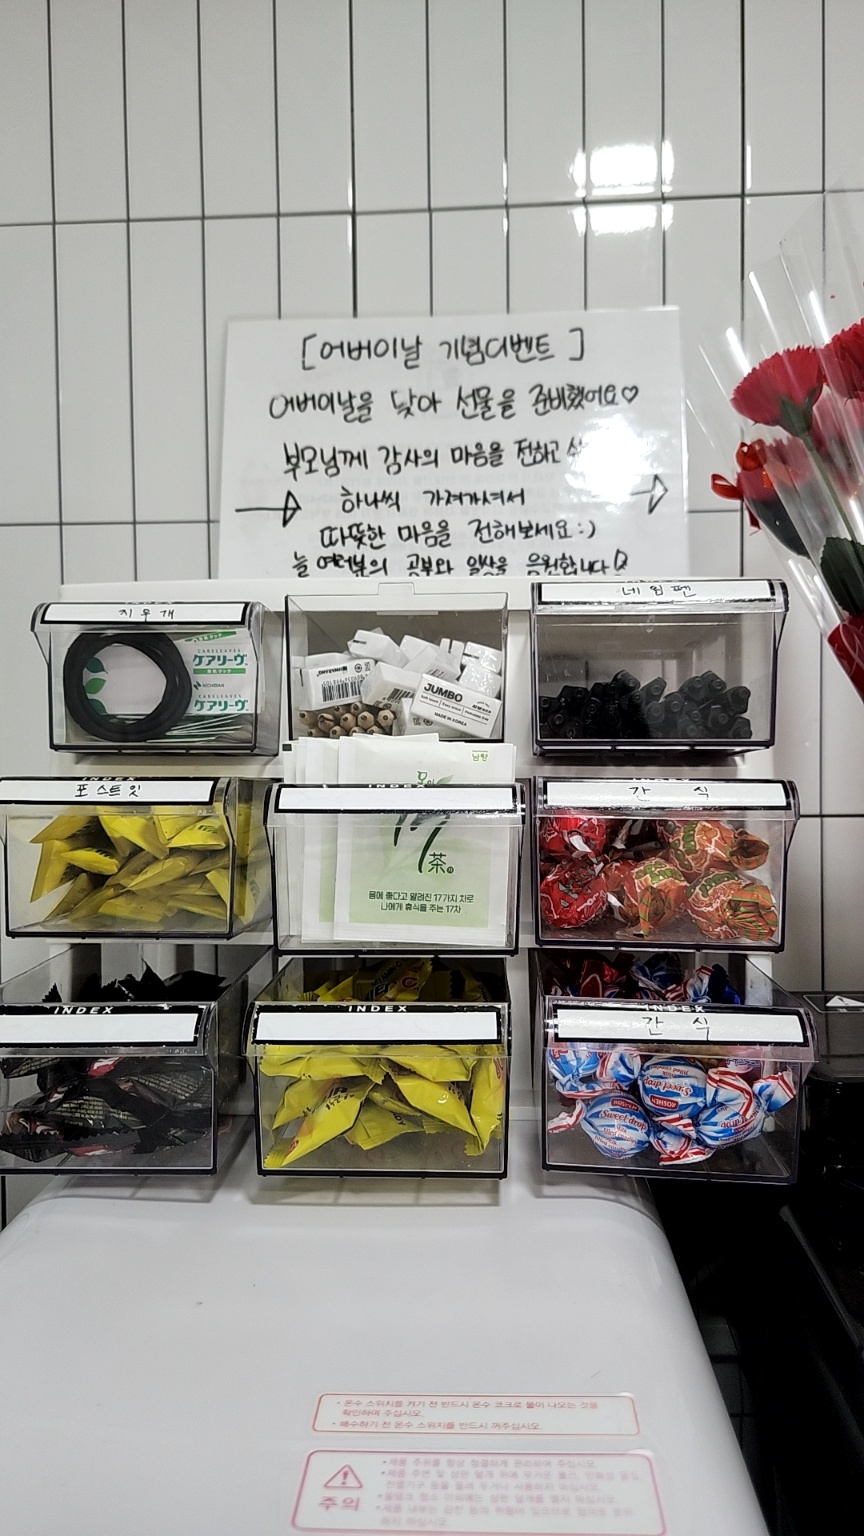 [어버이날 기념이벤트]
어버이날을 맞아 선물을 준비했어요♡
부모님께 감사의 마음을 전하고
하나씩 가져가셔서
따뜻한 마음을 전해보세요:)
늘 여러분의 공부와 일상을 응원합니다
지우개
네임펜
CARELEAVES
ケアリーヴ
NICHIBAN
CARELEAVES
ケアリーヴ
JUMBO
MADE IN KOREA
INDEX
포스트잇
INDEX
INDEX
간식
남양
茶
몸에 좋다고 알려진 17가지 차로
나에게 휴식을 주는 17차
INDEX
INDEX
INDEX
간식
Sweet drop
ROSHEN
Sweet drop
• 온수 스위치를 켜기 전 반드시 온수 코크로 물이 나오는 것을
확인하여 주십시오.
• 배수하기 전 온수 스위치를 반드시 꺼주십시오.
주의
• 제품 주위를 항상 청결하게 관리하여 주십시오.